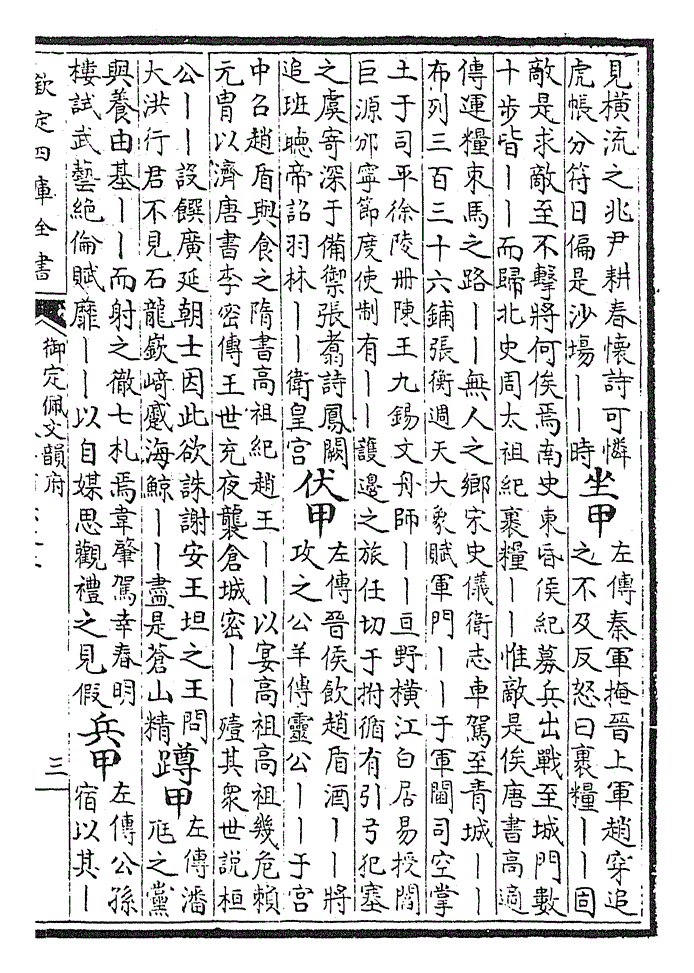 見横流之兆尹耕春懷詩可憐
虎帳分符日偏是沙場丨丨時
坐甲
左傳秦軍掩晉上軍趙穿追
之不及反怒曰裹糧丨丨固
敵是求敵至不擊將何俟焉南史東昏侯紀募兵出戰至城門數
十步皆丨丨而歸北史周太祖紀裹糧丨丨惟敵是俟唐書高適
傳運糧束馬之路丨丨無人之鄉宋史儀衛志車駕至青城丨丨
布列三百三十六鋪張衡週天大象賦軍門丨丨于軍閫司空掌
土于司平徐陵册陳王九錫文舟師丨丨亘野横江白居易授閻
巨源邠寧節度使制有丨丨護邊之旅任切于拊循有引弓犯塞
之虞寄深于備禦張翥詩鳳闕
追班聴帝詔羽林丨丨衛皇宫
伏甲
左傳晉侯飲趙盾酒丨丨將
攻之公羊傳靈公丨丨于宫
中召趙盾與食之隋書高祖紀趙王丨丨以宴高祖高祖幾危賴
元胄以濟唐書李密傳王世充夜襲倉城密丨丨殪其衆世説桓
公丨丨設饌廣延朝士因此欲誅謝安王坦之王問
大洪行君不見石龍嶔崎蹙海鯨丨丨盡是蒼山精
蹲甲
左傳潘
尫之黨
與養由基丨丨而射之徹七札焉韋肇駕幸春明
樓試武藝絶倫賦靡丨丨以自媒思觀禮之見假
兵甲
左傳公孫
宿以其丨
欽定四庫全書
御定佩文韻府
三